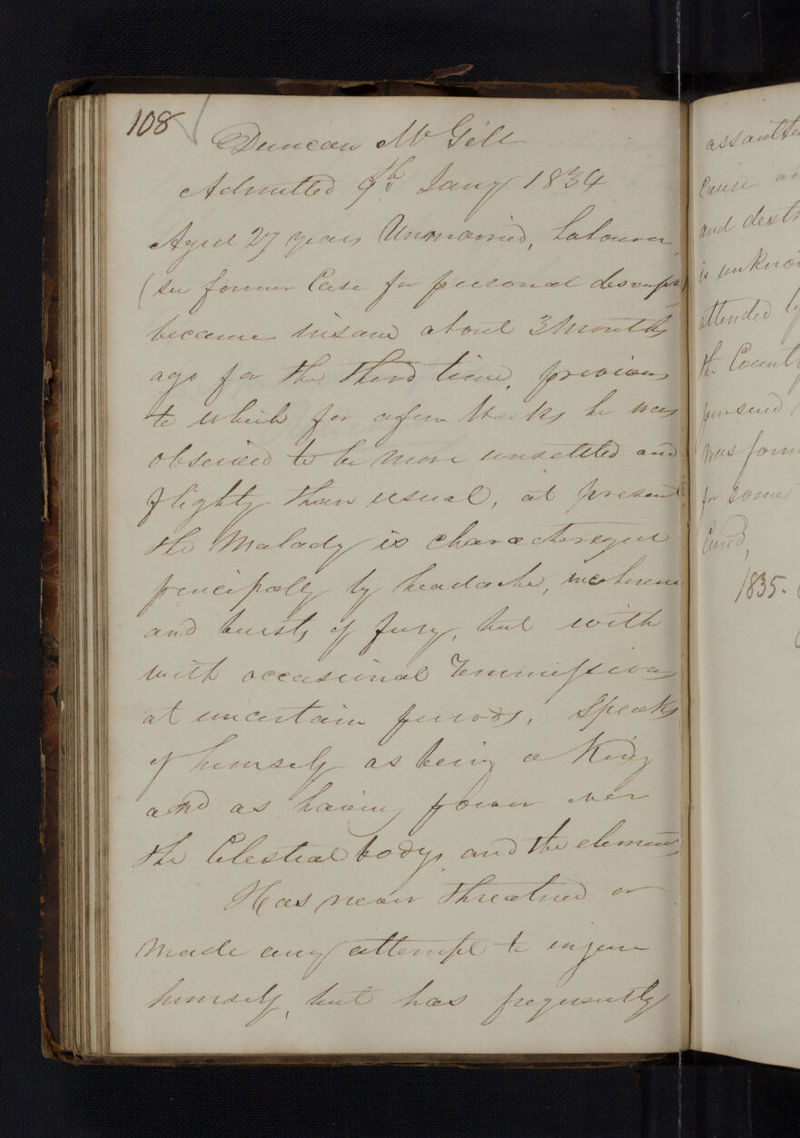 108
Duncan McGill
Admitted 9th Jany 1834
Aged 27 years Unmarried, Labourer,
(see former Case for personal descript)
became insane about 3 Months
ago for the third time, previous
to which for a few Weeks he was
observed to be more unsettled and
flighty than usual, at present
the Malady is characterized
principally by headache, incoherence
and bursts of fury, but with
with occasional Remissions
at uncertain periods, Speaks
of himself as being a King
and as having power over
the Celestial bodys and the elements
Has never threatned or
made any attempt to injure
himself, but has frequently
assaulte
Cause
and dest
is unkno
attended
the Count
pursued
was form
for some
Cured,
1835.